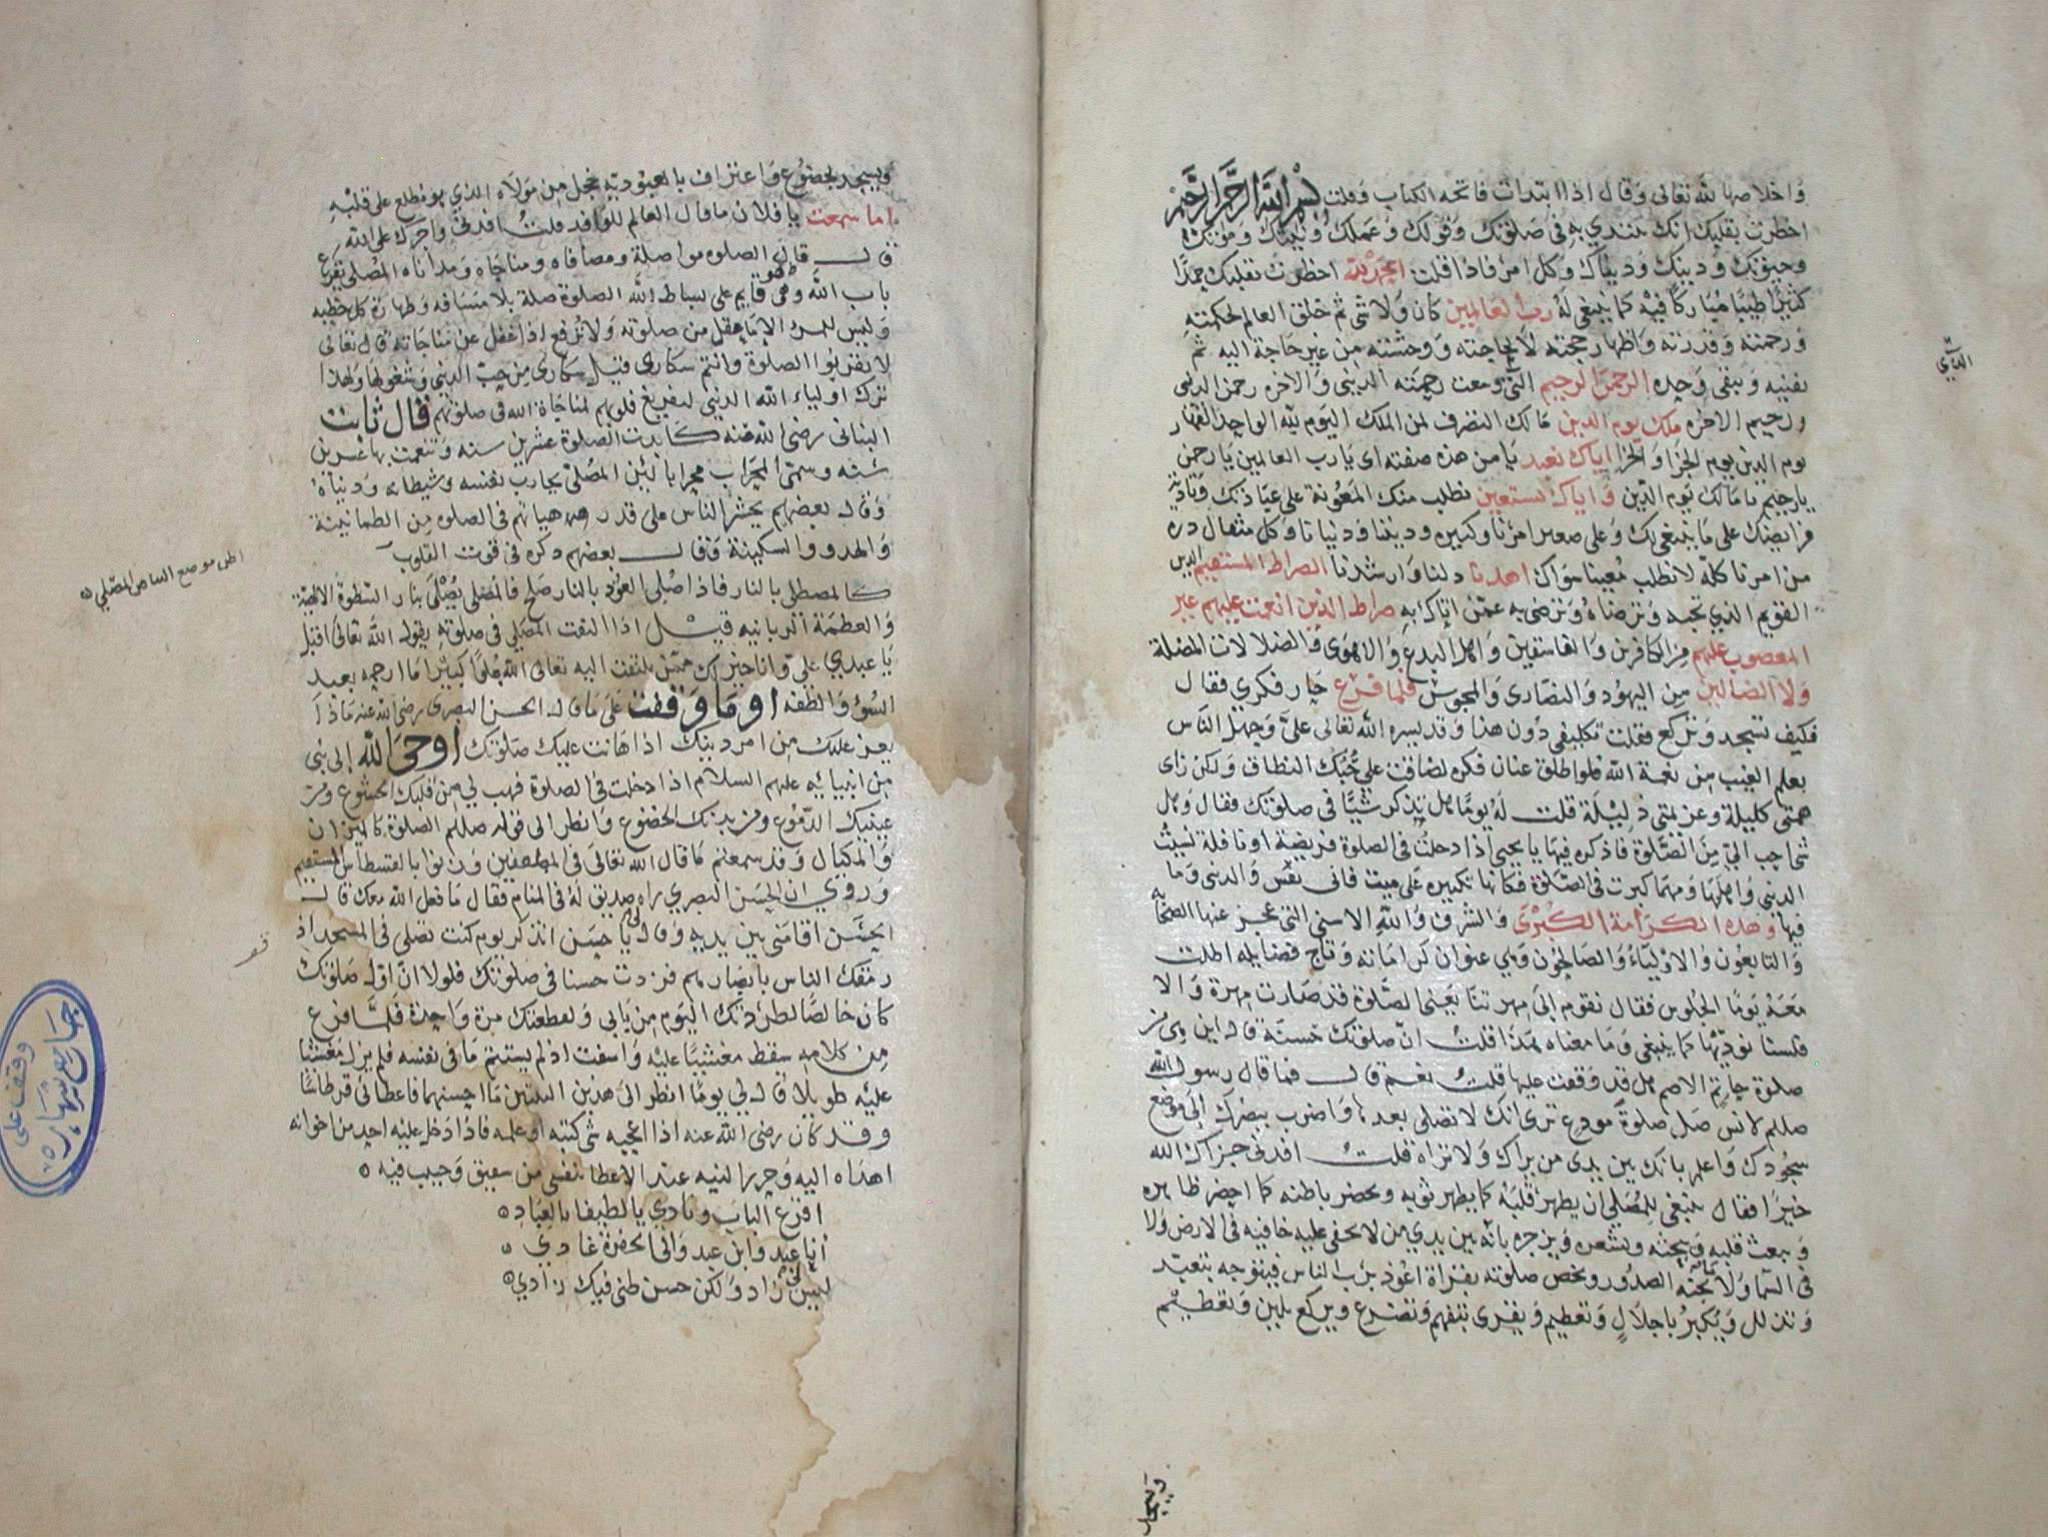 واخلاصها لله تعالى وقال اذا ابتدات فاتحة الكتاب وقلت بسم الله الرحمن الرحيم
احظرت بقلبك انك مبتدي به في صلوتك وقولك وعملك ونيتك وموتك
وحيوتك ودينك ودنياك وكل امر فاذا قلت الحمد لله احظرت بقلبك حمدا
كثيرا طيبا مباركا فيه كما ينبغي له رب العالمين كان ولا شي ثم خلق العالم لحكمته
ورحمته وقدرته واظهار حجته لا لحاجته ووحشته من غير حاجة اليه ثم
يفنيه ويبقى وحده الرحمن الرحيم التي وسعت رحمته الدنيى والاخره رحمن الدنيى
ورحيم الاخره ملك يوم الدين مالك التصرف لمن الملك اليوم لله الواحد القهار
يوم الدين يوم الجزا اياك نعبد يا من هذه صفته اي يا رب العالمين يا رحمن
يا رحيم يا مالك يوم الدين واياك نستعين نطلب منك المعونة على عبادتك وتادية
فرايضك على ما ينبغي لك وعلى صغير امرنا وكبيره وديننا ودنيانا وكل مثقال ذره
من امرنا كله لا نطلب معينا سواك اهدنا دلنا وارشدنا الصراط المستقيم الدين
القويم الذي تحبه وترضاه وترضى به عمن اتاك به صراط الذين انعمت عليهم غير
المغضوب عليهم من الكافرين والفاسقين واهل البدع والاهوى والضلالات المضلة
ولا الضالين من اليهود والنصارى والمجوس فلما فرغ حار فكري فقال
فكيف تسجد وتركع فقلت تكليفي دون هذا وقد يسره الله تعالى علي وجهل الناس
بعلم الغيب من نعمة الله فلو اطلق عنان فكره لضاقت على حبك النطاق ولكن راى
همتي كليلة وعزيمتي ذليلة قلت له يوما هل تذكر شيا في صلوتك فقال وهل
شي احب الي من الصلوة فاذكره فيها يا يحيى اذا دخلت في الصلوة فريضة او نافلة نسيت
الدنيى واهلها ومهما كبرت في الصلوة فكانها تكبيره على ميت فانى نفس والدنيى وما
فيها وهذه الكرامة الكبرى والشرف والله الاسنى التي عجز عنها الصحابه
والتابعون والاولياء والصالحون وهي عنوان كراماته وتاج فضايله اطلت
معه يوما الجلوس فقال نقوم الى مهرتنا يعني الصلوة قد صارت مهرة والا
فلسنا نؤديها كما ينبغي وما معناه هذا قلت ان صلوتك حسنة قال اين هي من
صلوة حاتم الاصم هل قد وقفت عليها قلت نعم قال فما قال رسول الله
صللم لانس صل صلوة مودع ترى انك لا تصلي بعدها واضرب ببصرك الى موضع
سجودك واعلم بانك بين يدي من يراك ولا تراه قلت افدني جزاك الله
خيرا فقال ينبغي للمصلي ان يطهر قلبه كما يطهر ثوبه ويحضر باطنه كما احضر ظاهره
ويبعث قلبه ويحثه ويشعره ويزجره بانه بين يدي من لا يخفى عليه خافيه في الارض ولا
في السما ولا تجنه الصدور ويخص صلوته بقراة اعوذ برب الناس فيتوجه بتعبد
وتذلل ويكبر باجلال وتعظيم ويقرى بتفهم وتضرع ويركع بلين وتعظيم
ويسجد
الذي
ويسجد بخضوع واعتراف بالعبوديه بخجل من مولاه الذي هو مطلع على قلبه
اما سمعت يا فلان ما قال العالم للوافد قلت افدني واجرك على الله
قال قال الصلوه مواصلة ومصافاه ومناجاه ومداناه المصلي يقرع
باب الله وهو قايم على بساط الله الصلوة صلة بلا مسافه وطهارة كل خطيه
وليس للمرء الا ما عقل من صلوته ولا ترفع اذا غفل عن مناجاته قال تعالى
لا تقربوا الصلوة وانتم سكارى قيل سكارى من حب الدنيى وشغولها ولهذا
ترك اولياء الله الدنيى لتفريغ قلوبهم لمناجاة الله في صلوتهم قال ثابت
البناني رضي الله عنه كابدت الصلوة عشرين سنه وتنعمت بها عشرين
سنه وسمي المحراب محرابا لئن المصلي يحارب نفسه وشيطانه ودنياه
وقال بعضهم يحشر الناس على قدر هيآتهم في الصلوه من الطمانينة
والهدو والسكينة وقال بعضهم ذكره في قوت القلوب
اظن موضع البياض المصلي
كالمصطلي بالنار فاذا صلى العود بالنار صلح فالمصلي يصلى بنار السطوة الالهية
والعظمة الربانيه قيل اذا التفت المصلي في صلوته يقول الله تعالى اقبل
يا عبدي علي وانا خير لك ممن تلتفت اليه تعالى الله علوا كبيرا ما ارحمه بعبد
السوء والطفه اوما وقفت على ما قال الحسن البصري رضي الله عنه ماذا
يعز عليك من امر دينك اذا هانت عليك صلوتك اوحى الله الى نبي
من انبيائه عليهم السلام اذا دخلت في الصلوة فهب لي من قلبك الخشوع ومن
عينيك الدموع ومن بدنك الخضوع وانظر الى قوله صللم الصلوة كالميزان
والمكيال وقد سمعتم ما قال الله تعالى في المطففين وزنوا بالقسطاس المستقيم
وروي ان الحسن البصري راه صديق له في المنام فقال ما فعل الله معك قال
الحسن اقامني بين يديه وقال لي يا حسن اتذكر يوم كنت تصلي في المسجد اذ
رمقك الناس بابصارهم فزدت حسنا في صلوتك فلولا ان اول صلوتك
كان خالصا لطردتك اليوم من بابي ولقطعتك مرة واحدة فلما فرغ
من كلامه سقط مغشيا عليه واسفت اذ لم يستتم ما في نفسه فلم يزل مغشيا
عليه طويلا قال لي يوما انظر الى هذين البيتين ما احسنهما فاعطاني قرطاسا
وقد كان رضي الله عنه اذا اعجبه شي كتبه او علمه فاذا دخل عليه احد من اخوانه
اهداه اليه
اقرع الباب ونادي يا لطيفا بالعباد
انا عبد وابن عبد واتى بحفرة غادي
ليس لي زاد ولكن حسن ظني فيك زادي
وقف على
جامع شهاره